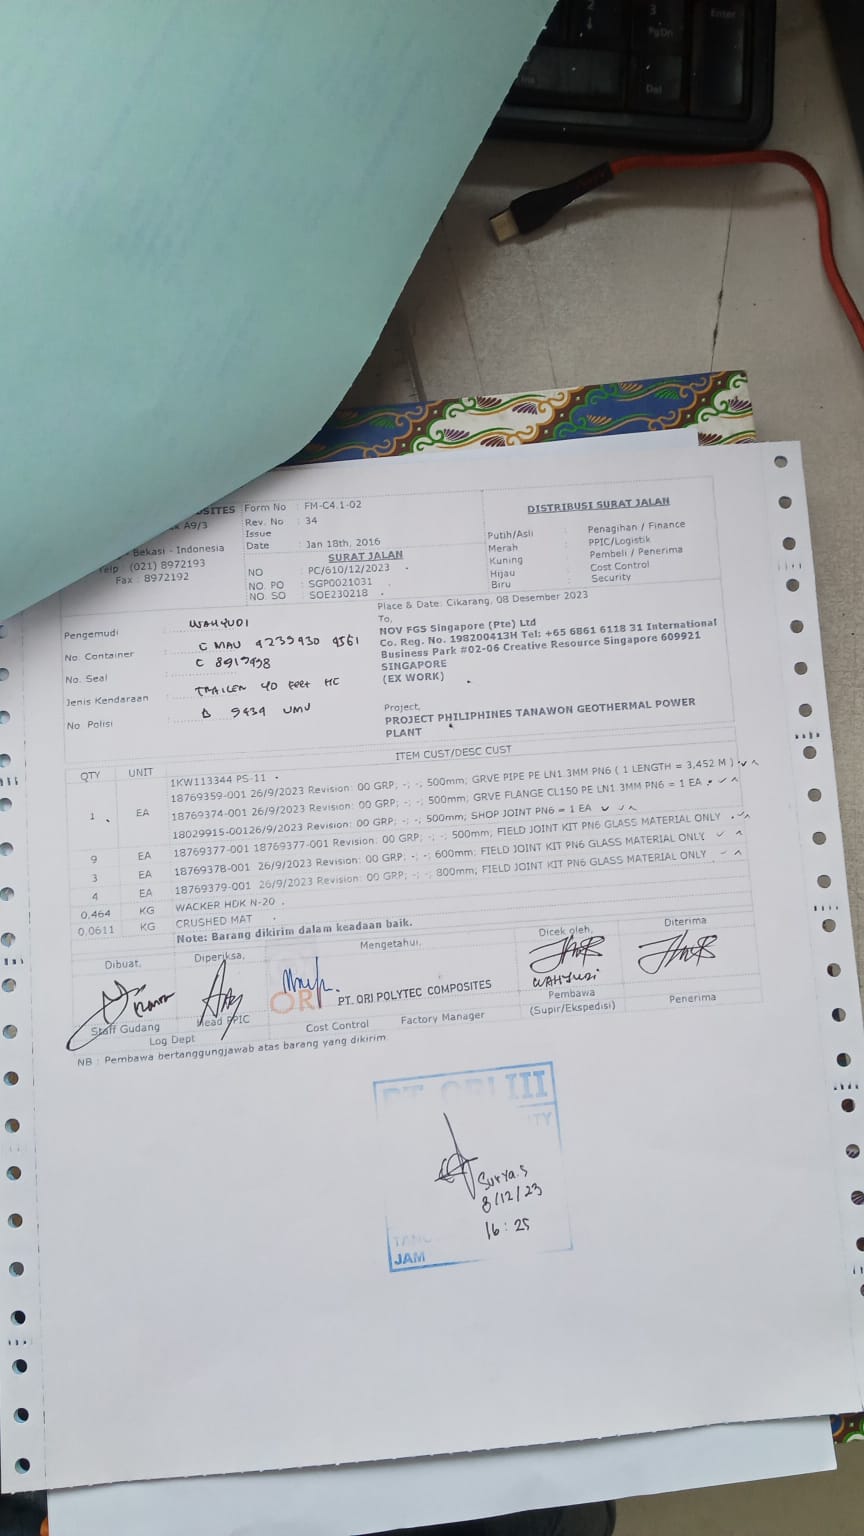 Enter
3
PgDn
Del
SITES
A9/3
Bekasi - Indonesia
Telp (021) 8972193
Fax : 8972192
Form No : FM-C4.1-02
Rev. No : 34
Issue
Date : Jan 18th, 2016
SURAT JALAN
NO : PC/610/12/2023
NO. PO : SGP0021031
NO. SO : SOE230218
DISTRIBUSI SURAT JALAN
Putih/Asli : Penagihan / Finance
Merah : PPIC/Logistik
Kuning : Pembeli / Penerima
Hijau : Cost Control
Biru : Security
Pengemudi : WAHYUDI
No. Container : C MAU
No. Seal :
Jenis Kendaraan : TRAILER 40 Feet HC
No Polisi :
Place & Date: Cikarang, 08 Desember 2023
To,
NOV FGS Singapore (Pte) Ltd
Co. Reg. No. 198200413H Tel: +65 6861 6118 31 International
Business Park #02-06 Creative Resource Singapore 609921
SINGAPORE
(EX WORK)
Project,
PROJECT PHILIPHINES TANAWON GEOTHERMAL POWER
PLANT
QTY UNIT ITEM CUST/DESC CUST
1KW113344 PS-11
18769359-001 26/9/2023 Revision: 00 GRP; -; -; 500mm; GRVE PIPE PE LN1.3MM PN6 ( 1 LENGTH = 3,452 M )
1 EA 18769374-001 26/9/2023 Revision: 00 GRP; -; -; 500mm; GRVE FLANGE CL150 PE LN1 3MM PN6 = 1 EA
18029915-00126/9/2023 Revision: 00 GRP; -; -; 500mm; SHOP JOINT PN6 = 1 EA
9 EA 18769377-001 18769377-001 Revision: 00 GRP; -; -; 500mm; FIELD JOINT KIT PN6 GLASS MATERIAL ONLY
3 EA 18769378-001 26/9/2023 Revision: 00 GRP; -; -; 600mm; FIELD JOINT KIT PN6 GLASS MATERIAL ONLY
4 EA 18769379-001 26/9/2023 Revision: 00 GRP; -; -; 800mm; FIELD JOINT KIT PN6 GLASS MATERIAL ONLY
0,464 KG WACKER HDK N-20
0,0611 KG CRUSHED MAT
Note: Barang dikirim dalam keadaan baik.
Dibuat, Diperiksa, Mengetahui, Dicek oleh, Diterima
ORI
PT. ORI POLYTEC COMPOSITES
WAHYUDI
Staff Gudang Head PPIC Cost Control Factory Manager Pembawa Penerima
Log Dept (Supir/Ekspedisi)
NB : Pembawa bertanggungjawab atas barang yang dikirim
PT ORI III
Surya.S
8/12/23
16 : 25
JAM